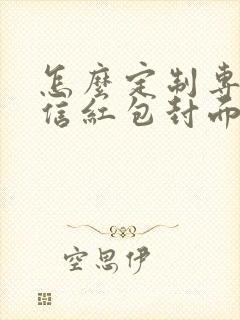 怎麼定制專
信紅包封而
空思伊